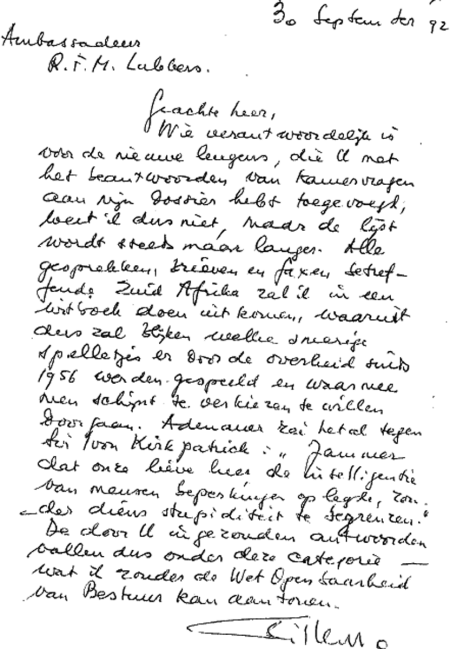 30 September 92
Ambassadeur
R.F.M. Lubbers.
Geachte heer,
Wie verantwoordelijk is
voor de nieuwe leugens, die U met
het beantwoorden van Kamervragen
aan mijn Dossier hebt toegevoegd,
weet ik dus niet, maar de lijst
wordt steeds maar langer. Alle
gesprekken, brieven en faxen betref-
fende Zuid Afrika zal ik in een
witboek doen uitkomen, waaruit
dus zal blijken welke smerige
spelletjes er door de overheid sinds
1956 werden gespeeld en waarmee
men schijnt te verkiezen te willen
doorgaan. Adenauer zei het al tegen
Sir Ivon Kirkpatrick: „Jammer
dat onze lieve heer de intelligentie
van mensen beperkingen op legde, zon-
der diens stupiditeit te begrenzen."
De door U ingezonden antwoorden
vallen dus onder deze categorie —
wat ik zonder de Wet Openbaarheid
van Bestuur kan aantonen.